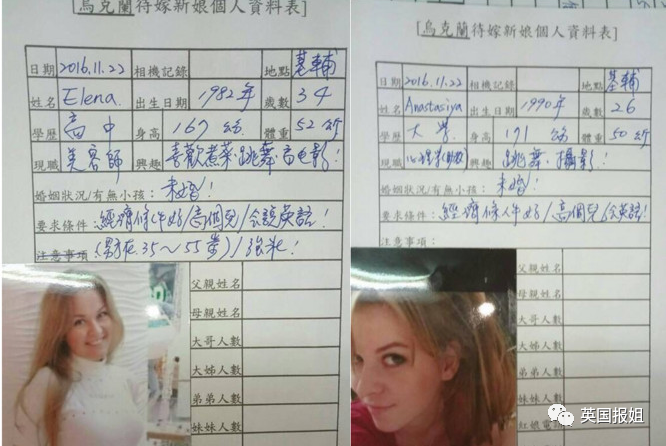 [烏克蘭待嫁新娘個人資料表]
日期 2016.11.22 相機記錄 地點 基輔
姓名 Elena. 出生日期 1982年 歲數 34
學歷 高中 身高 167 公分 體重 52 公斤
現職 美容師 興趣 喜歡煮菜、跳舞、看电影!
婚姻狀況/有無小孩: 未婚!
要求條件: 經濟條件好/高個兒/会說英語!
注意事項 (男方在35~55歲)/強壯!
父親姓名
母親姓名
大哥人數
大姊人數
弟弟人數
妹妹人數
[烏克蘭待嫁新娘個人資料表]
日期 2016.11.22 相機記錄 地點 基輔
姓名 Anastasiya 出生日期 1990年 歲數 26
學歷 大學 身高 171 公分 體重 50 公斤
現職 心理学 興趣 跳舞、攝影!
婚姻狀況/有無小孩: 未婚!
要求條件: 經濟條件好/高個兒/会英語!
注意事項:
父親姓名
母親姓名
大哥人數
大姊人數
弟弟人數
妹妹人數
紅娘電
英国报姐